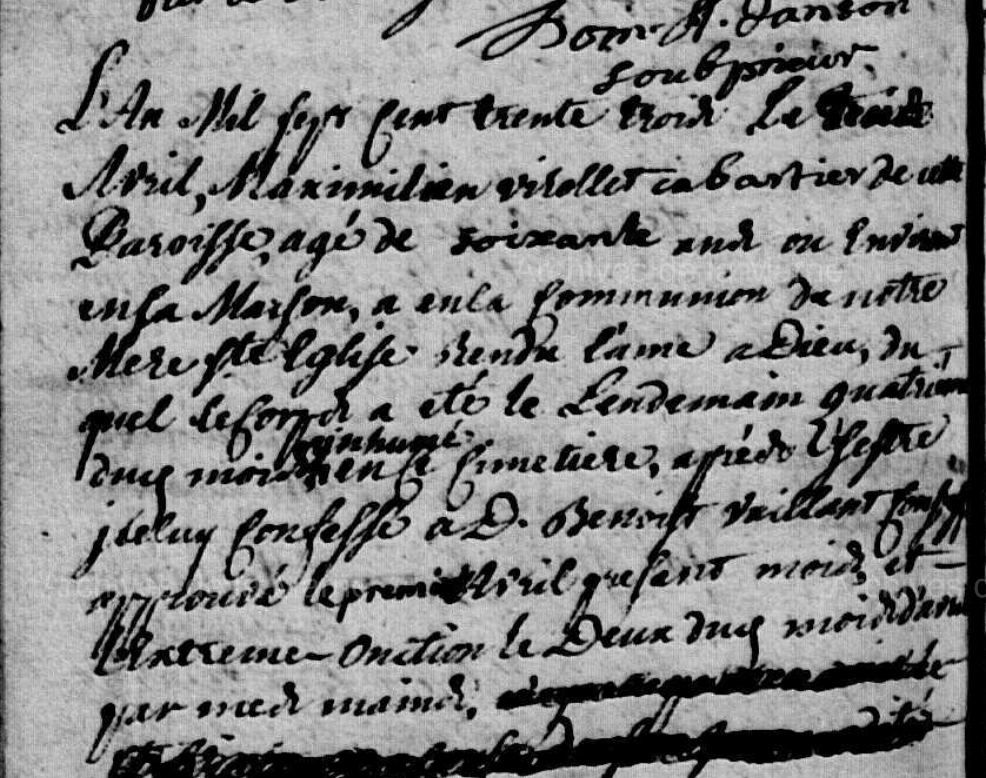 Dom. H. Janson
soubprieur.
L'An Mil sept cent trente trois Le trois
Avril, Maximilien virollet cabartier de cette
Paroisse, agé de soixante ans ou Environ
en sa Maison, a en la Communion de notre
Mere ste Eglise rendu l'ame a Dieu, du
quel le Corps a eté le Lendemain quatrieme
inhumé
duq mois en ce Cimetiere, aprés s'estre
jceluy Confessé a D. Benoist Vaillant
approuvé le premier Avril presant mois, et
l'Extreme-Onction le Deux duq mois
par mes mains,